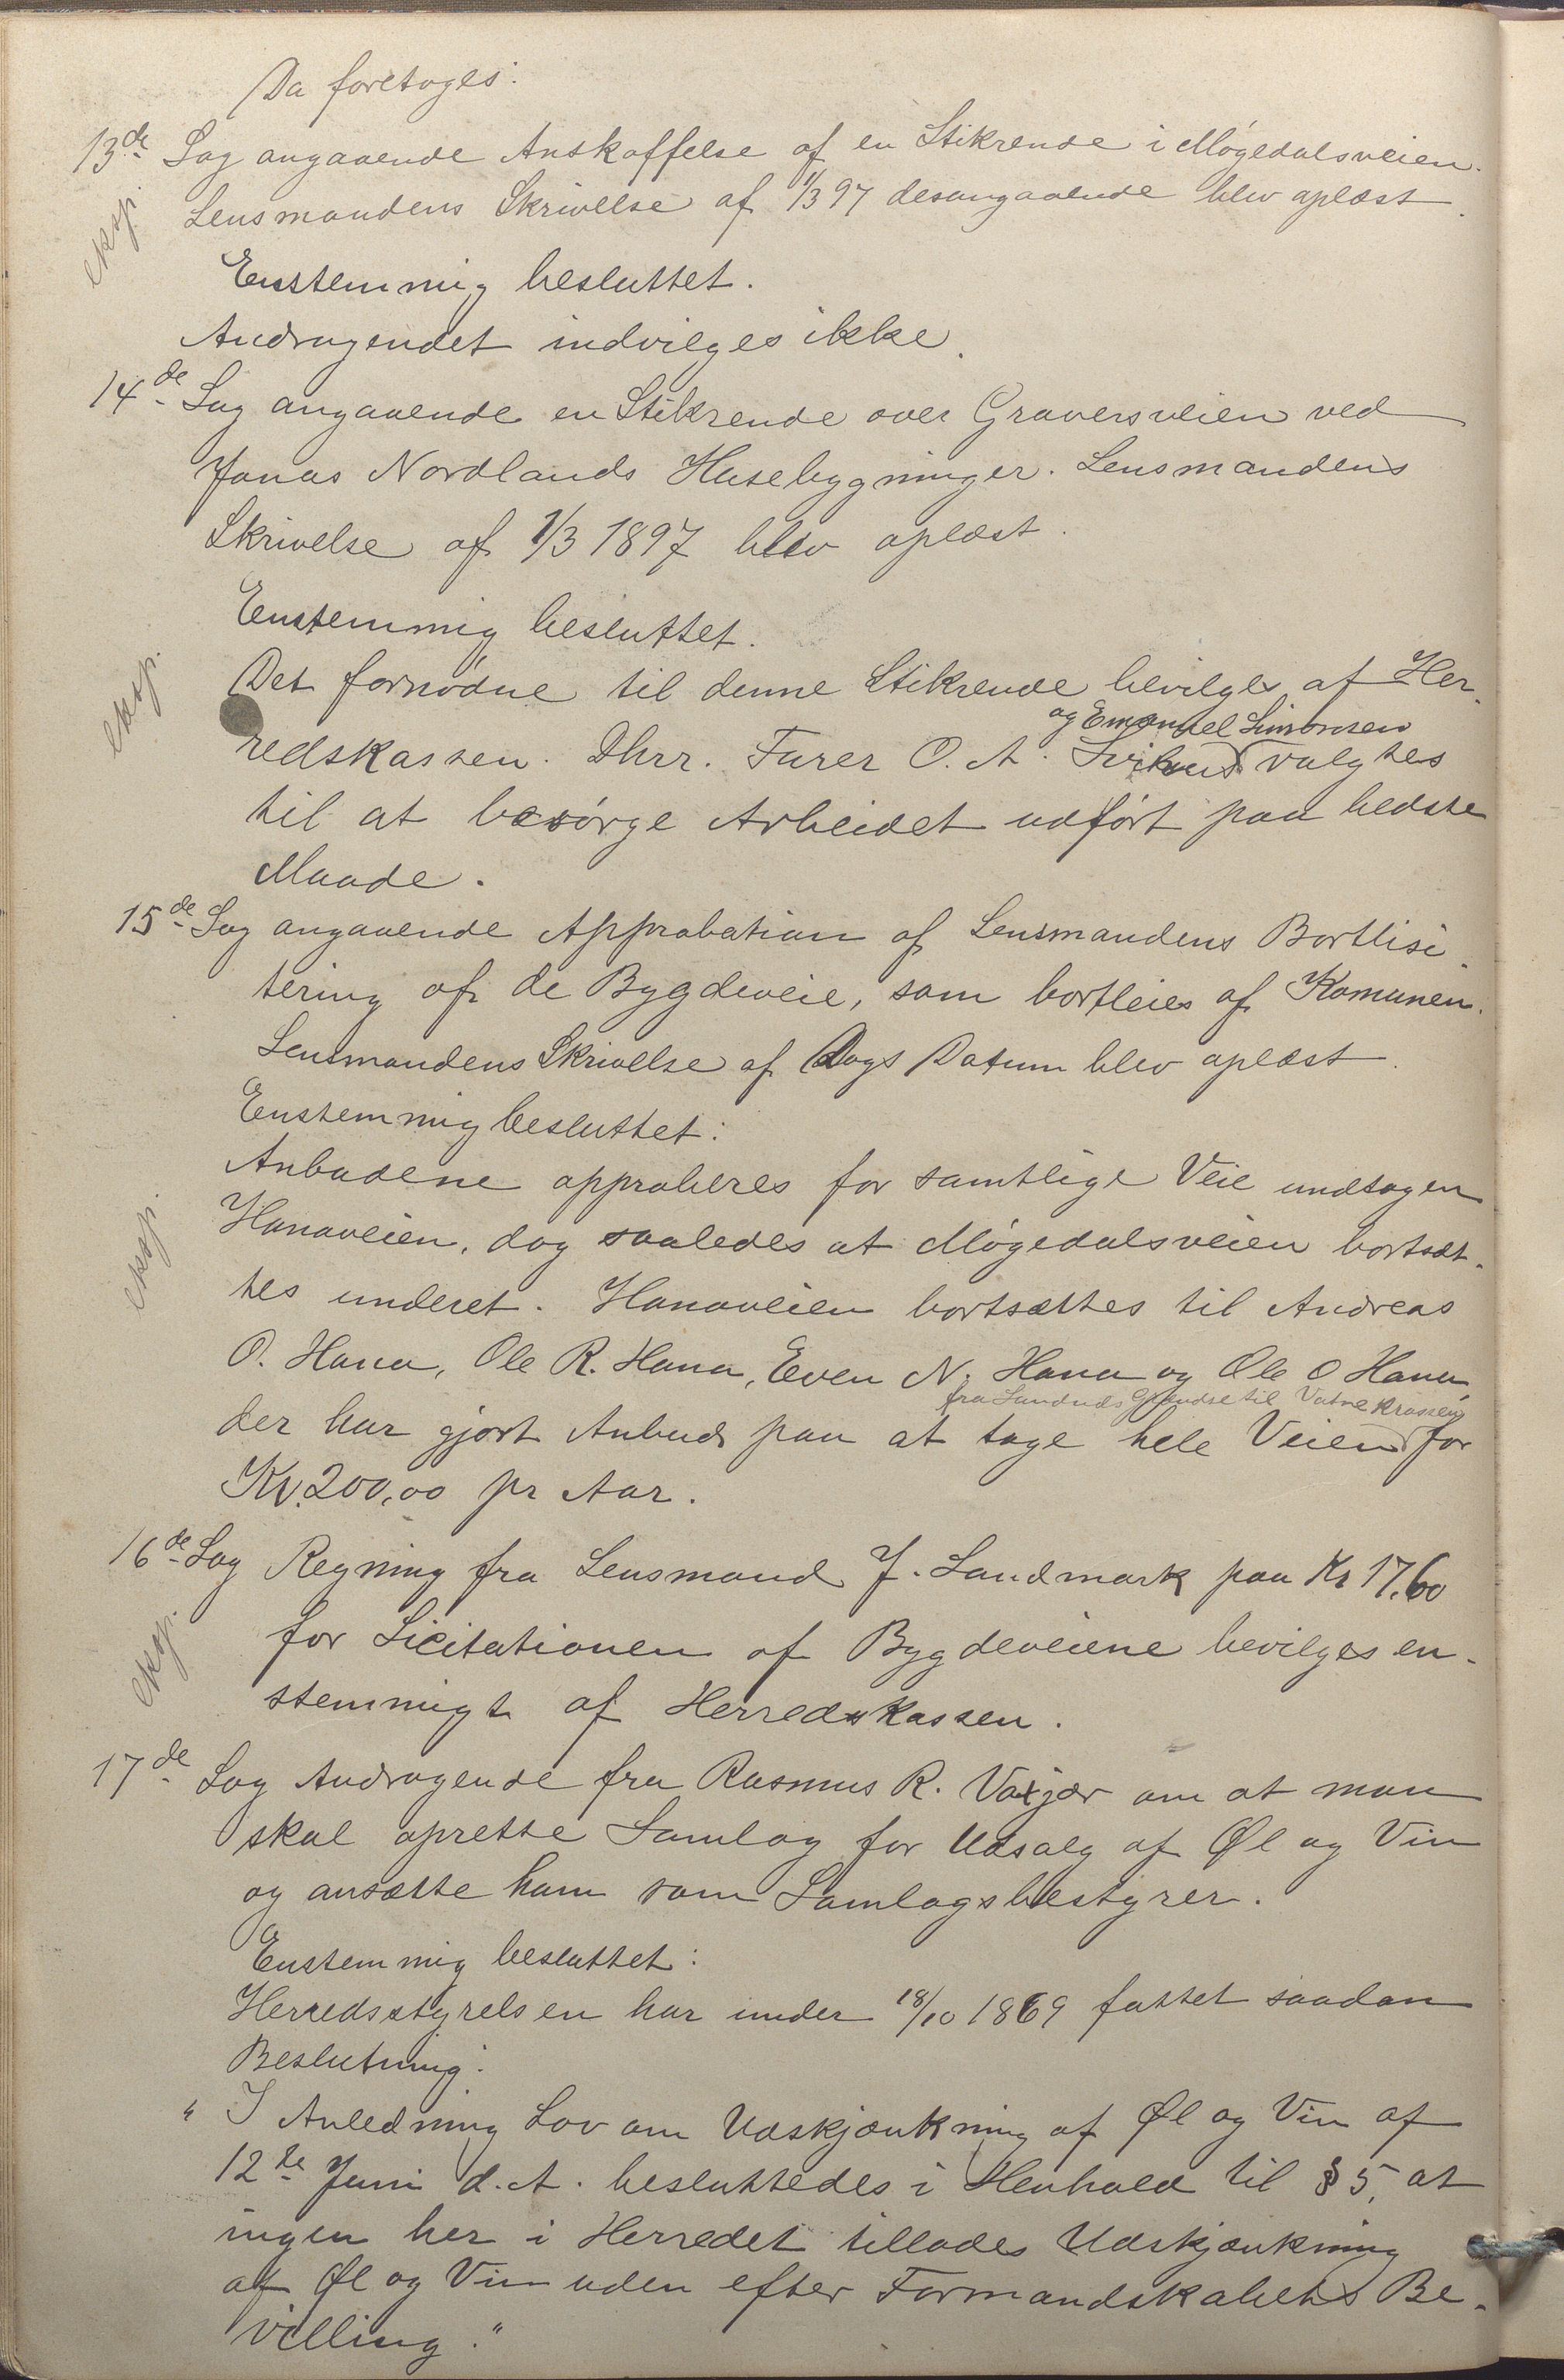 Da foretoges:
13de Sag angaaende Anskaffelse af en Stikrende i Møgedalsveien.
Lensmandens Skrivelse af 1/3 97 desangaaende blev oplæst.
eksp.
Enstemmig besluttet.
Andragendet indvilges ikke.
14de Sag angaaende en Stikrende over Graversveien ved
Jonas Nordlands Husebygninger. Lensmandens
Skrivelse af 1/3 1897 blev oplæst.
Enstemmig besluttet.
eksp.
Det fornødne til denne Stikrende bevilges af Her-
og Emanuel Simonsen
redskassen. Dhrr. Furer O. A. valgtes
til at besørge Arbeidet udført paa bedste
Maade.
15de Sag angaaende Approbation af Lensmandens Bortlisi-
tering af de Bygdeveie, som bortleies af Komunen.
Lensmandens Skrivelse af Dags Datum blev oplæst.
Enstemmig besluttet:
Anbudene approberes for samtlige Veie undtagen
eksp.
Hanaveien, dog saaledes at Møgedalsveien bortsæt-
tes underet. Hanaveien bortsættes til Andreas
O. Hana, Ole R. Hana, Even N. Hana og Ole O Hana,
fra Sandnds Grændse til Vatnekrossen
der har gjort Anbud paa at tage hele Veien for
Kr. 200,00 pr Aar.
16de Sag Regning fra Lensmand J. Landmark paa Kr 17,60
eksp.
for Licitationen af Bygdeveiene bevilges en-
stemmigt af Herredskassen.
17de Sag Andragende fra Rasmus R. Vaxjær om at man
skal oprette Samlag for Udsalg af Øl og Vin
og ansætte ham som Samlagsbestyrer.
Enstemmig besluttet:
Herredsstyrelsen har under 18/10 1869 fattet saadan
Beslutning:
" I Anledning Lov om Udskjænkning af Øl og Vin af
12te Juni d. A. besluttedes i Henhold til § 5, at
ingen her i Herredet tillades Udskjænkning
af Øl og Vin uden efter Formandskabets Be-
villing."